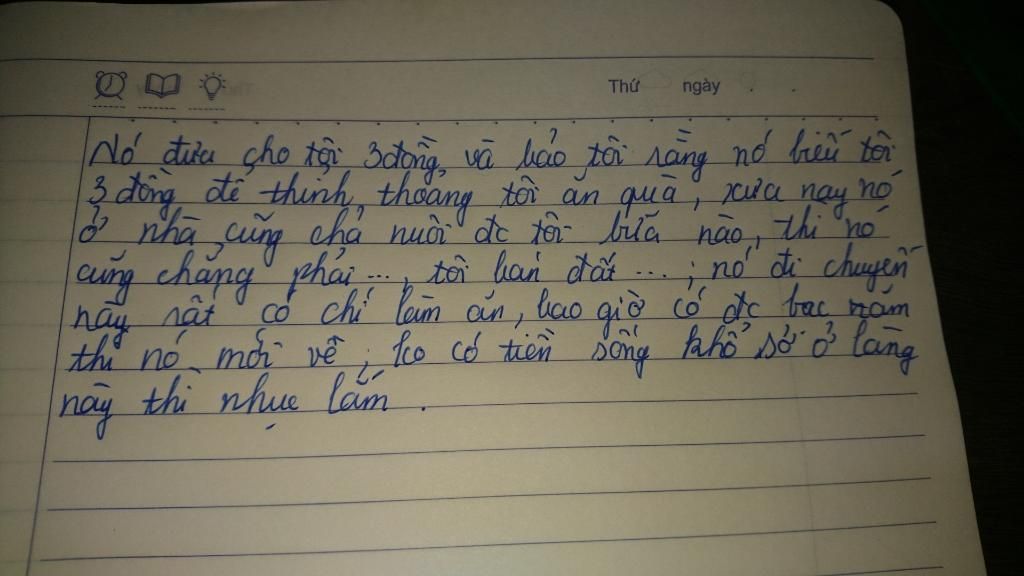 Thứ ngày
Nó đưa cho tôi 3 đồng, và bảo tôi rằng nó biếu tôi
3 đồng để thỉnh thoảng tôi ăn quà, xưa nay nó
ở nhà cũng chả nuôi đc tôi bữa nào, thì nó
cũng chẳng phải ..., tôi bán đất ...; nó đi chuyến
này rất có chí làm ăn, bao giờ có đc bạc trăm
thì nó mới về; ko có tiền sống khổ sở ở làng
này thì nhục lắm.